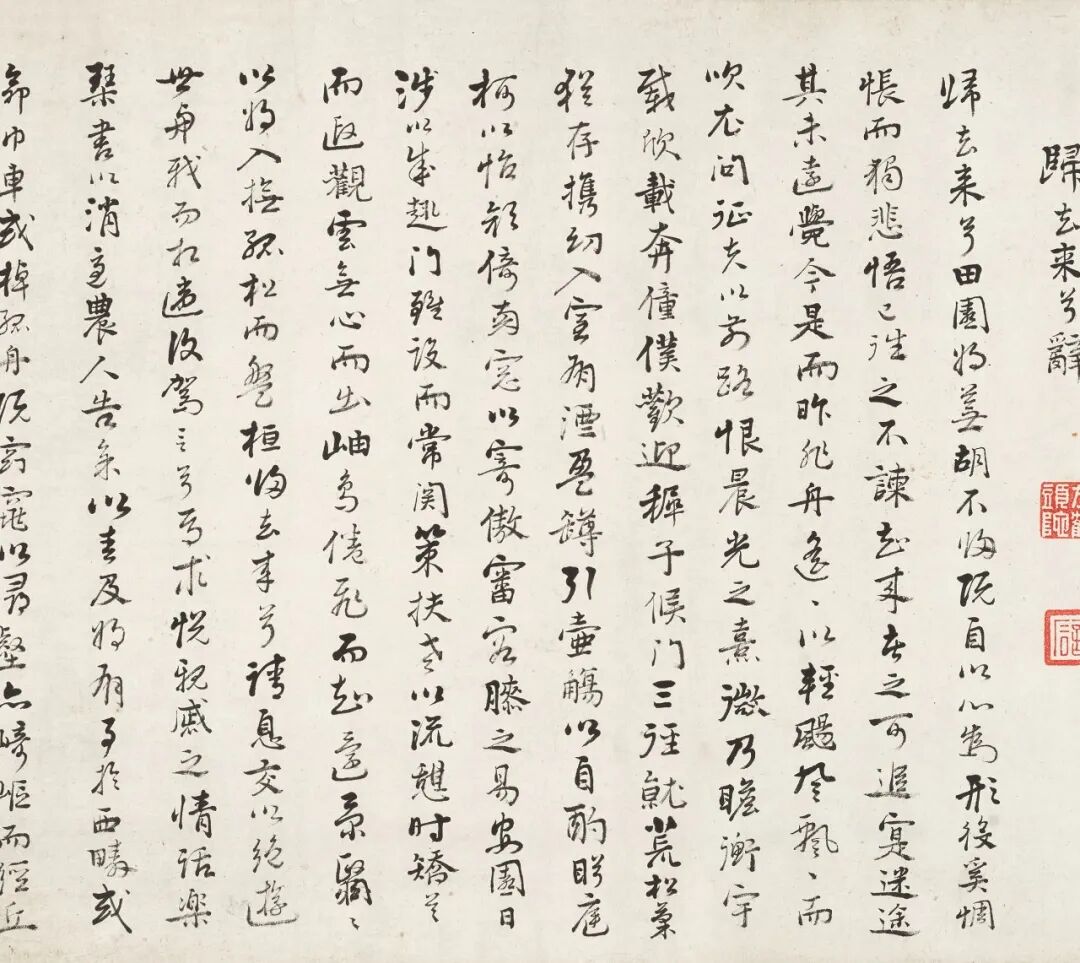 歸去来兮辭
歸去来兮田園将蕪胡不歸既自以心為形役奚惆
悵而獨悲悟已往之不諫知来者之可追寔迷途
其未遠覺今是而昨非舟遙、以輕颺風飄、而
吹衣問征夫以前路恨晨光之熹微乃瞻衡宇
載欣載奔僮僕歡迎稺子候门三徑就荒松菊
猶存携幼入室有酒盈罇引壺觴以自酌眄庭
柯以怡顔倚南窓以寄傲審容膝之易安園日
涉以成趣门雖設而常関策扶老以流憩时矯首
而遐觀雲無心而出岫鳥倦飛而知還景翳、
以将入撫孤松而盤桓歸去来兮請息交以絶遊
世與我而相遺復駕言兮焉求悦親戚之情話樂
琴書以消憂農人告余以春及将有事於西疇或
命巾車或棹孤舟既窈窕以尋壑亦崎嶇而經丘